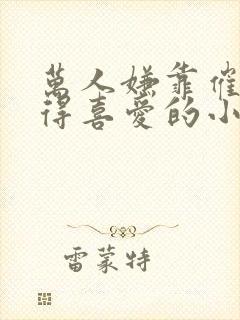 萬人嫌靠催
得喜愛的小
雷蒙特